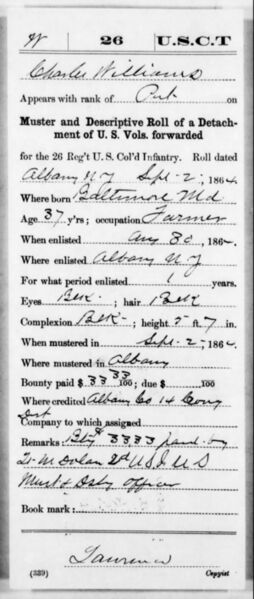 W 26 U.S.C.T
Charles Williams
Appears with rank of Pvt on
Muster and Descriptive Roll of a Detach-
ment of U. S. Vols. forwarded
for the 26 Reg't U. S. Col'd Infantry. Roll dated
Albany N Y Sept 2, 1864.
Where born Baltimore Md
Age 37 y'rs; occupation Farmer
When enlisted Aug 30, 1864.
Where enlisted Albany N Y
For what period enlisted 1 years.
Eyes Blk; hair Blk
Complexion Blk; height 5 ft. 7 in.
When mustered in Sept 2, 1864
Where mustered in Albany
Bounty paid $33 33/100; due $ /100
Where credited Albany Co 14 Cong
Dist
Company to which assigned
Remarks Bty $ 3333 paid by
M Dolan 2d U S I U S
Must & Disb'g Officer
Book mark:
Lawrence
(339) Copyist